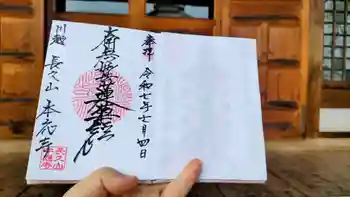 奉拝
令和七年七月四日
南無妙法蓮華経
川越
長久山
本応寺